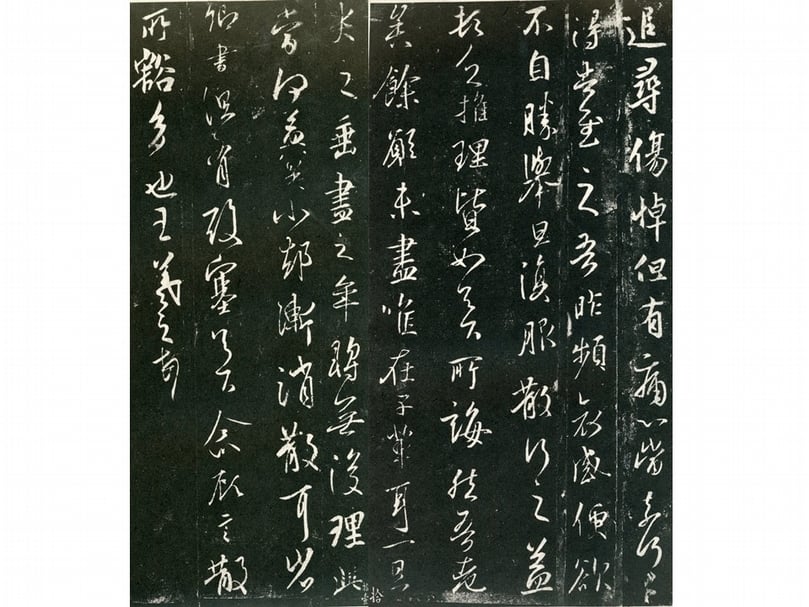 追尋傷悼但有痛心當奈何奈何
得告慰之吾昨頻哀感便欲
不自勝舉旦復服散行之益
頓乏推理皆如足下所誨然吾老
矣餘願未盡唯在子輩耳一旦
哭之垂盡之年轉無復理此
當何益冀小卻漸消散耳省
卿書但有酸塞足下念故言散
所豁多也王羲之頓首